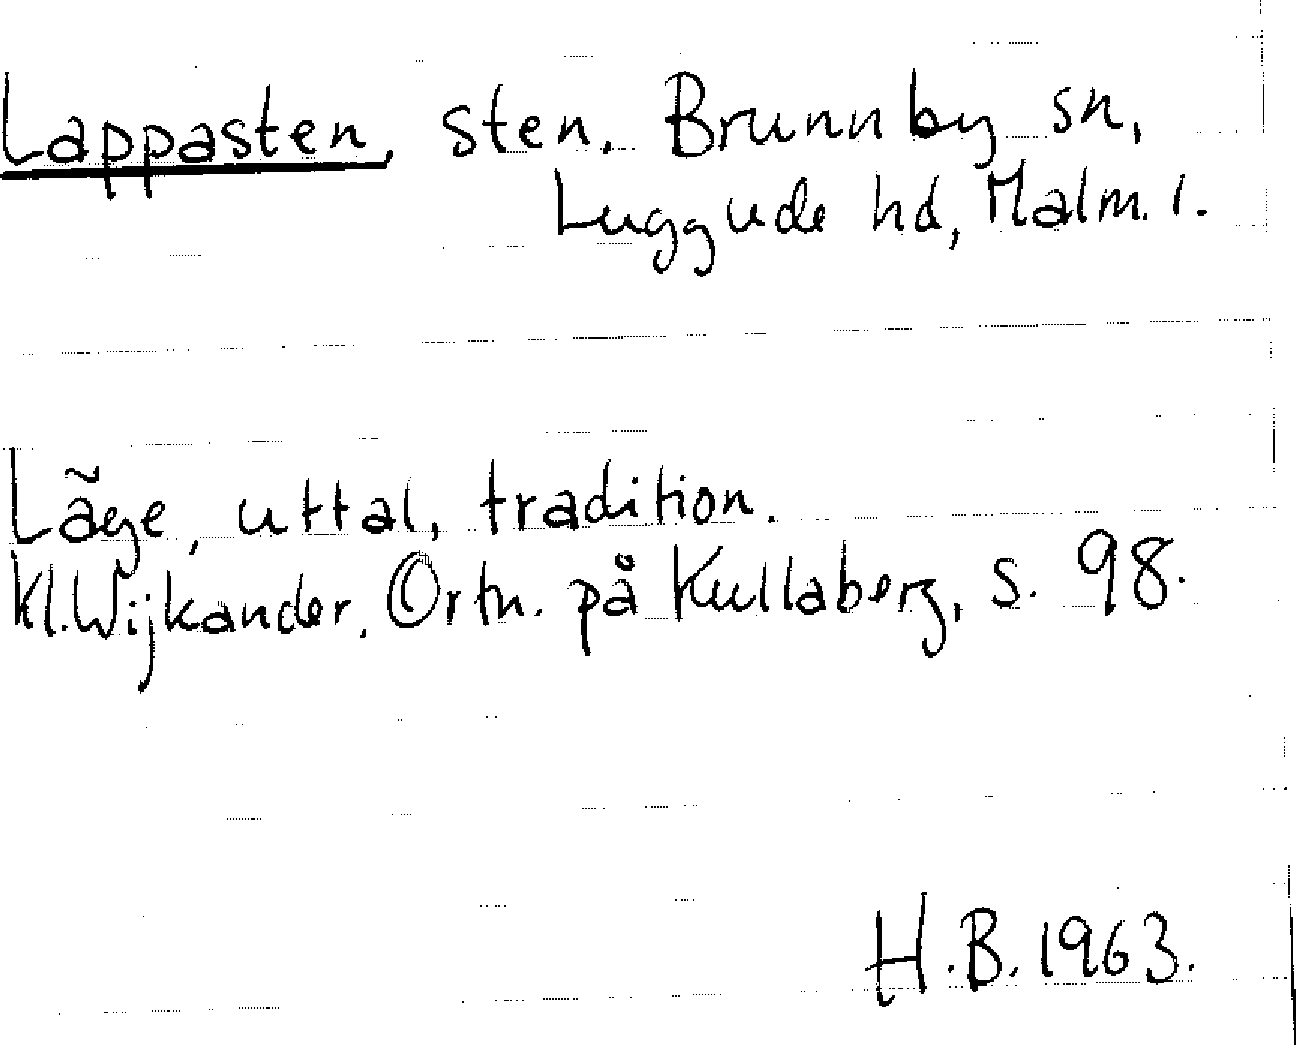 Lappasten, sten. Brunnby sn,
Luggude hd, Malm. l.
Läge, uttal, tradition.
Kl. Wijkander, Ortn. på Kullaberg, s. 98.
H.B. 1963.